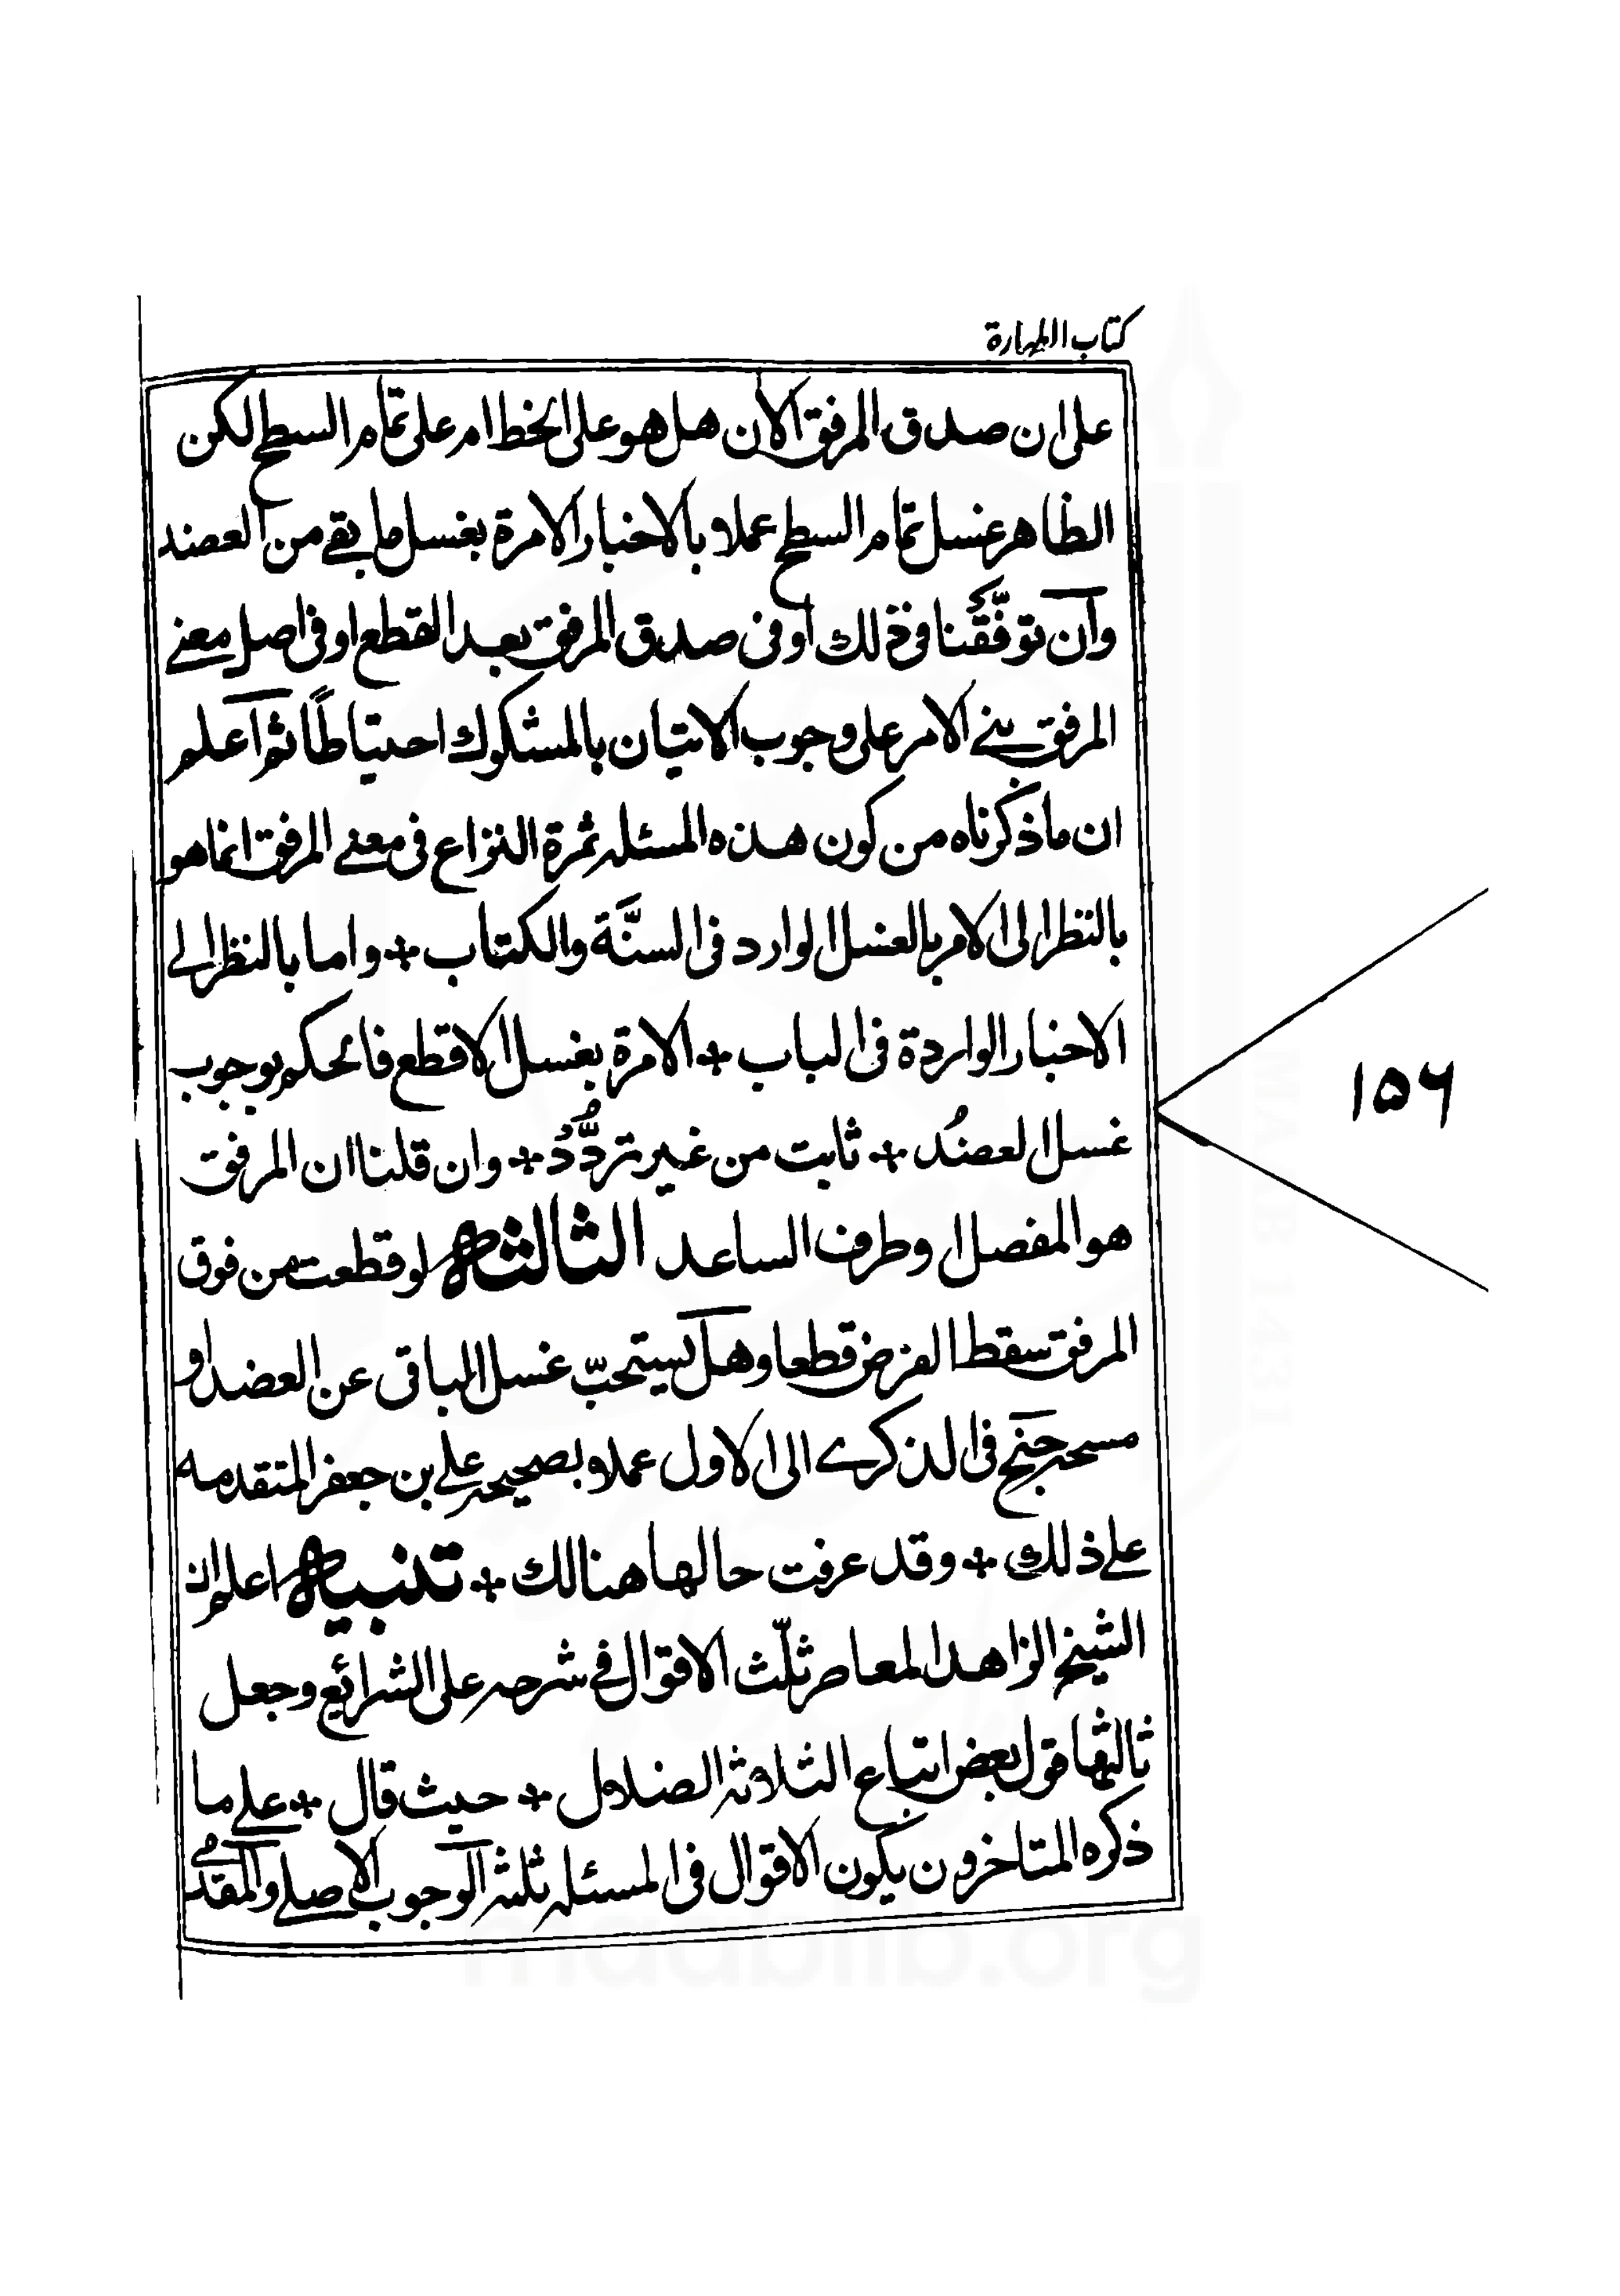 كتاب الطهارة
على ان صدق المرفق الآن هل هو على الخط ام على تمام السطح لكن
الظاهر غسل تمام السطح عملا بالاخبار الآمرة بغسل ما بقے من العضد
وان توقّفنا فى ذلك او فى صدق المرفق بعد القطع او فى اصل معنے
المرفق بنے الامر على وجوب الاتيان بالمشكوك احتياطًا ثم اعلم
ان ما ذكرناه من كون هذه المسئله ثمرة النزاع فى معنے المرفق انما هو
بالنظر الى الامر بالغسل الوارد فى السنَّة والكتاب + واما بالنظر الے
الاخبار الواردة فى الباب + الآمرة بغسل الاقطع فالحكم بوجوب
غسل العضُد + ثابت من غير تردُّدُ + وان قلنا ان المرفق
هو المفصل او طرف الساعد الثالثه لو قطعت من فوق
المرفق سقط الفرض قطعا وهل يستحبّ غسل الباقى عن العضد او
مسحه جنح فى الذكرے الى الاول عملا بصحيحه علے بن جعفر المتقدمه
علے ذلك + وقد عرفت حالها هنالك + تنبيه اعلم ان
الشيخ الزاهد المعاصر ثلّث الاقوال فے شرحه على الشرائع وجعل
ثالثها قول بعض اتباع الثلاثه الضلال + حيث قال + علے ما
ذكره المتاخرون يكون الاقوال فى المسئله ثلثه الوجوب الاصلے والمقدمے
۱۵۶
MAAB 1431
maablib.org